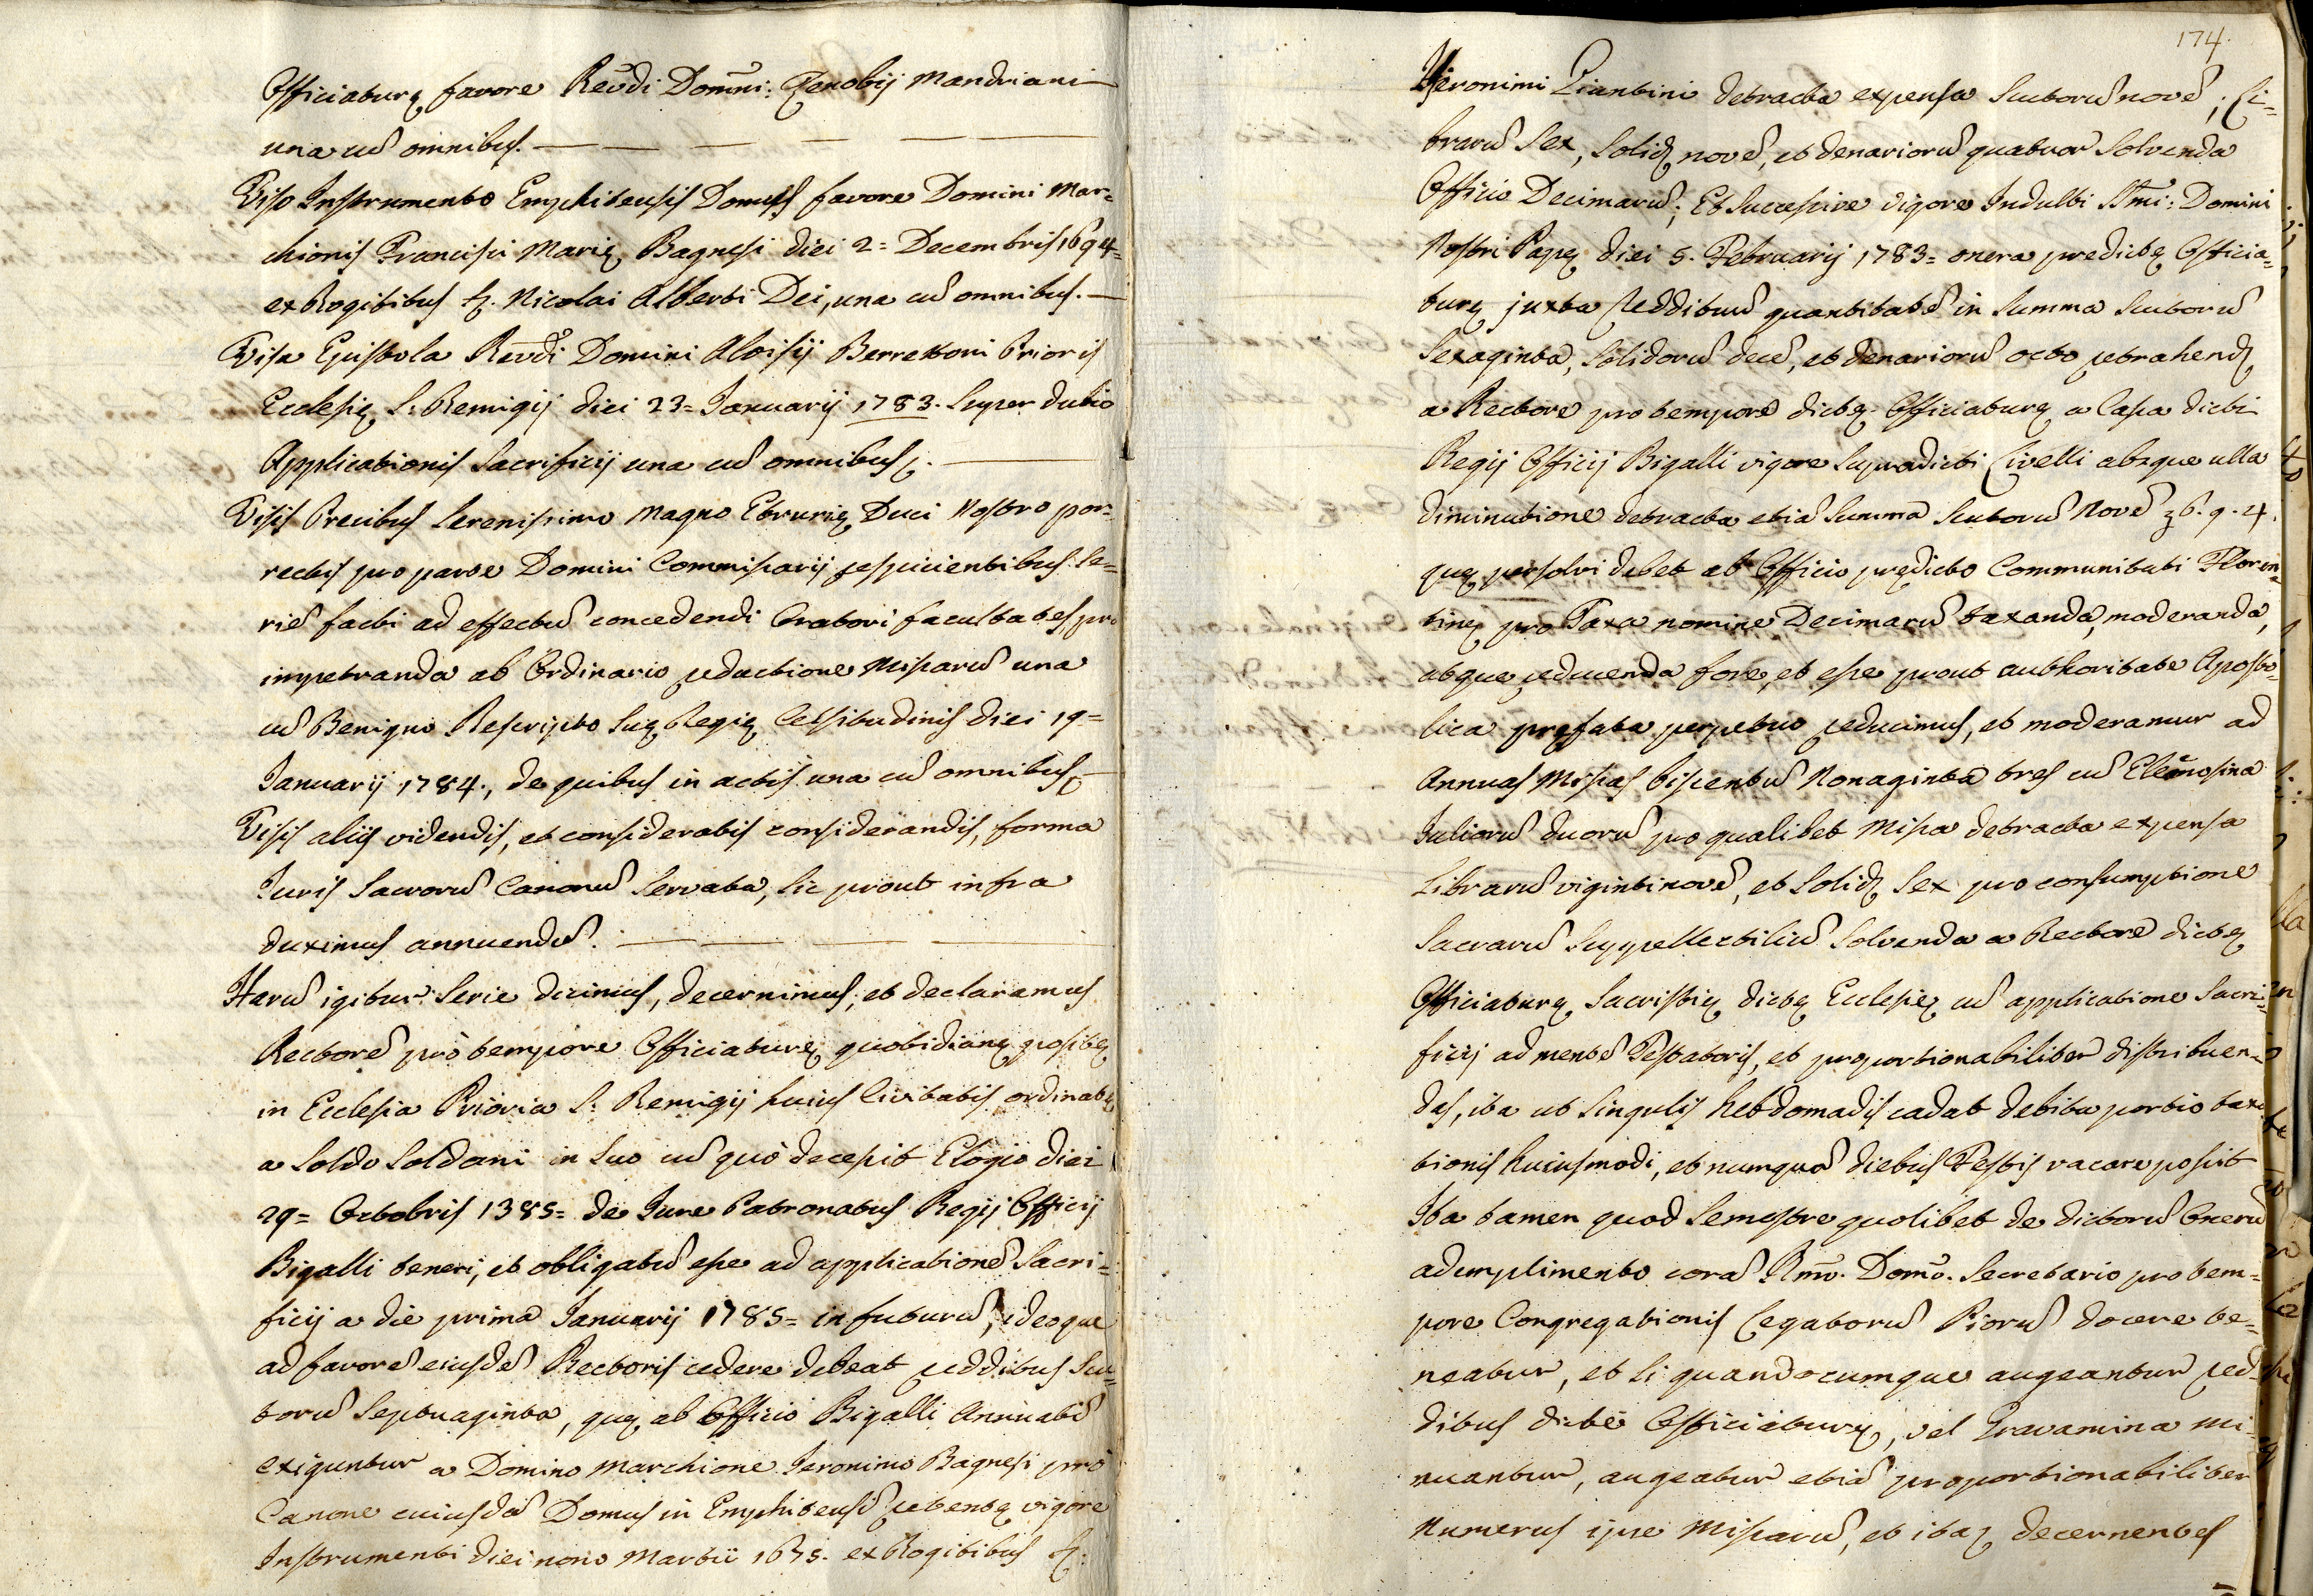 Officiaturę favore Reũdi Domĩni: Zenobij Mandriani
una cũ omnibus. — — — — —
Viso Instrumento Emphiteusis Domus favore Domini Mar=
chionis Francisci Marię Bagnesi diei 2= Decembris 1694=
ex Rogitibus S. Nicolai Alberti Dei, una cũ omnibus. —
Visa Epistola Reũdi Domini Aloisij Berrettoni Prioris
Ecclesię S: Remigij diei 23= Januarij 1783. super dubio
Applicationis Sacrificij una cũ omnibus. —
Visis Precibus Serenissimo Magno Etrurię Duci Nostro por=
rectis pro parte Domini Commissarij respicientibus se=
riẽ facti ad effectũ concedendi Oratori facultates, pro
impetranda ab Ordinario reductione Missarũ una
cũ Benigno Rescripto Suę Regię Celsitudinis diei 19=
Januarij 1784., de quibus in actis una cũ omnibus
Visis aliis videndis, et consideratis considerandis, forma
Juris Sacrorũ Canonũ servata, sic prout infra
duximus annuendũ. — — — —
Harũ igitur serie dicimus, decernimus, et declaramus
Rectorẽ pro tempore Officiaturę quotidianę positę
in Ecclesia Prioria S: Remigij huius Civitatis ordinatę
a Soldo Soldani in suo cũ quo decessit Elogio diei
29= Octobris 1385= de Jure Patronatus Regij Officij
Bigalli teneri, et obligatũ esse ad applicationẽ Sacri=
ficij a die prima Januarij 1785= in futurũ, ideoque
ad favorẽ eiusdẽ Rectoris cedere debeat redditus Scu=
torũ septuaginta, quę ab Officio Bigalli Annuatĩ
exiguntur a Domino Marchione Jeronimo Bagnesi pro
Canone cuiusdã Domus in Emphiteusĩ retentę vigore
Instrumenti diei nono Martii 1675. ex Rogitibus S:
174.
Hieronimi Piantini detracta expensa Scutorũ novẽ, Li=
brarũ sex, solidꝫ novẽ, et denariorũ quatuor solvenda
Officio Decimarũ; Et successive vigore Indulti SSmi: Domini
Nostri Papę diei 5. Februarij 1783= onera predictę Officia=
turę juxta reddituũ quantitatẽ in summa Scutorũ
sexaginta, solidorũ decẽ, et denariorũ octo retrahendꝫ
a Rectore pro tempore dictę Officiaturę a Casa dicti
Regij Officij Bigalli vigore supradicti Livelli absque ulla
diminutione detracta etiã summã Scutorũ Novẽ 36. 9. 4.
quę persolvi debet ab Officio prędicto Communitati Floren=
tinę pro Taxa nomine Decimarũ taxanda, moderanda,
atque reducenda fore, et esse prout authoritate Aposto=
lica pręfata perpetuo reducimus, et moderamur ad
Annuas Missas biscentũ Nonaginta tres cũ Elemosina
Juliorũ duorũ pro qualibet Missa detracta expensa
Librarũ vigintinovẽ, et solidꝫ sex pro consumptione
Sacrarũ suppellectiliũ solvenda a Rectore dictę
Officiaturę Sacristię dictę Ecclesię cũ applicatione Sacri=
ficij ad mentẽ Testatoris, et proportionabiliter distribuen=
das, ita ut singulis hebdomadis cadat debita portio taxa
tionis huiusmodi, et numquã diebus Festis vacare possit
Ita tamen quod semestre quolibet de dictorũ Onerũ
adimplimento corã Rmo. Domo. Secretario pro tem=
pore Congregationis Legatorũ Piorũ docere te=
neatur, et si quandocumque augeantur red=
ditus dictę Officiaturę, vel Gravamina mi=
nuantur, augeatur etiã proportionabiliter
Numerus ipse Missarũ, et itaꝫ decernentes